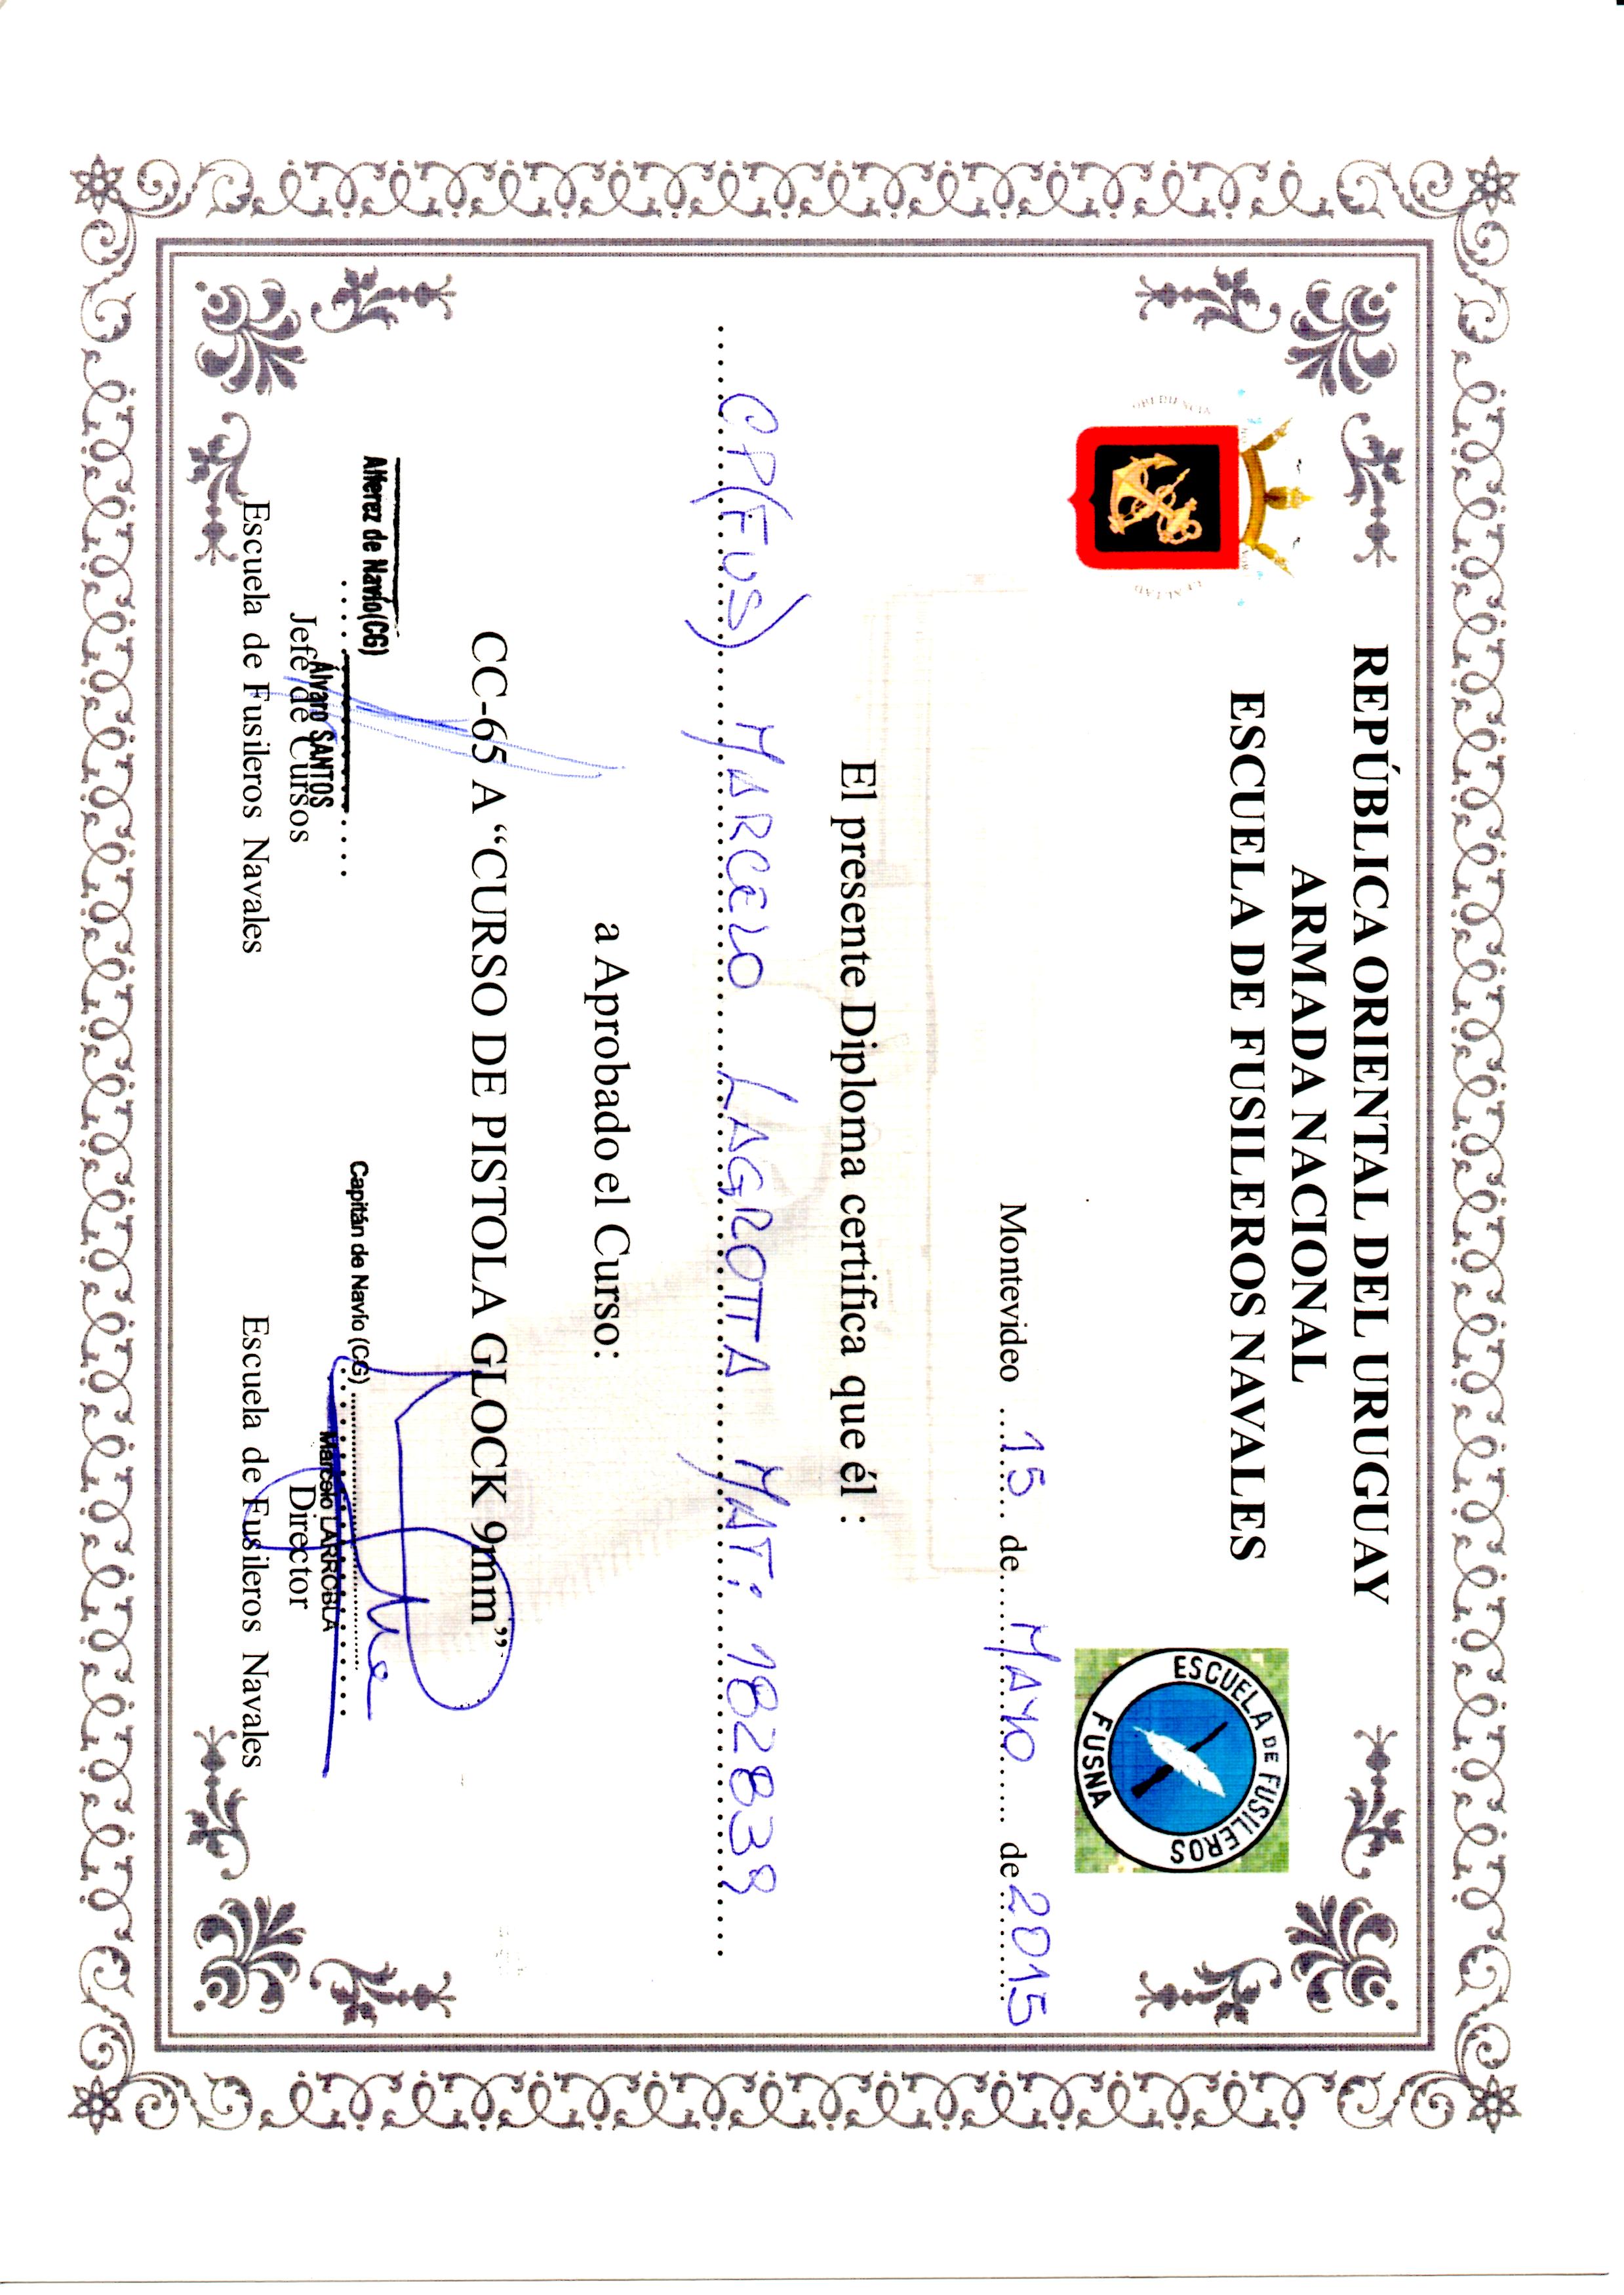 REPÚBLICA ORIENTAL DEL URUGUAY
ARMADA NACIONAL
ESCUELA DE FUSILEROS NAVALES
OBEDIENCIA
LEALTAD
ESCUELA DE FUSILEROS
FUSNA
Montevideo 15 de MAYO de 2015
El presente Diploma certifica que él :
CP(FUS) MARCELO LAGROTTA MAT: 182839
a Aprobado el Curso:
CC-65 A “CURSO DE PISTOLA GLOCK 9mm”
Alferez de Navío(CG)
Álvaro SANTOS
Jefe de Cursos
Escuela de Fusileros Navales
Capitán de Navío (CG)
Marcelo LARROBLA
Director
Escuela de Fusileros Navales